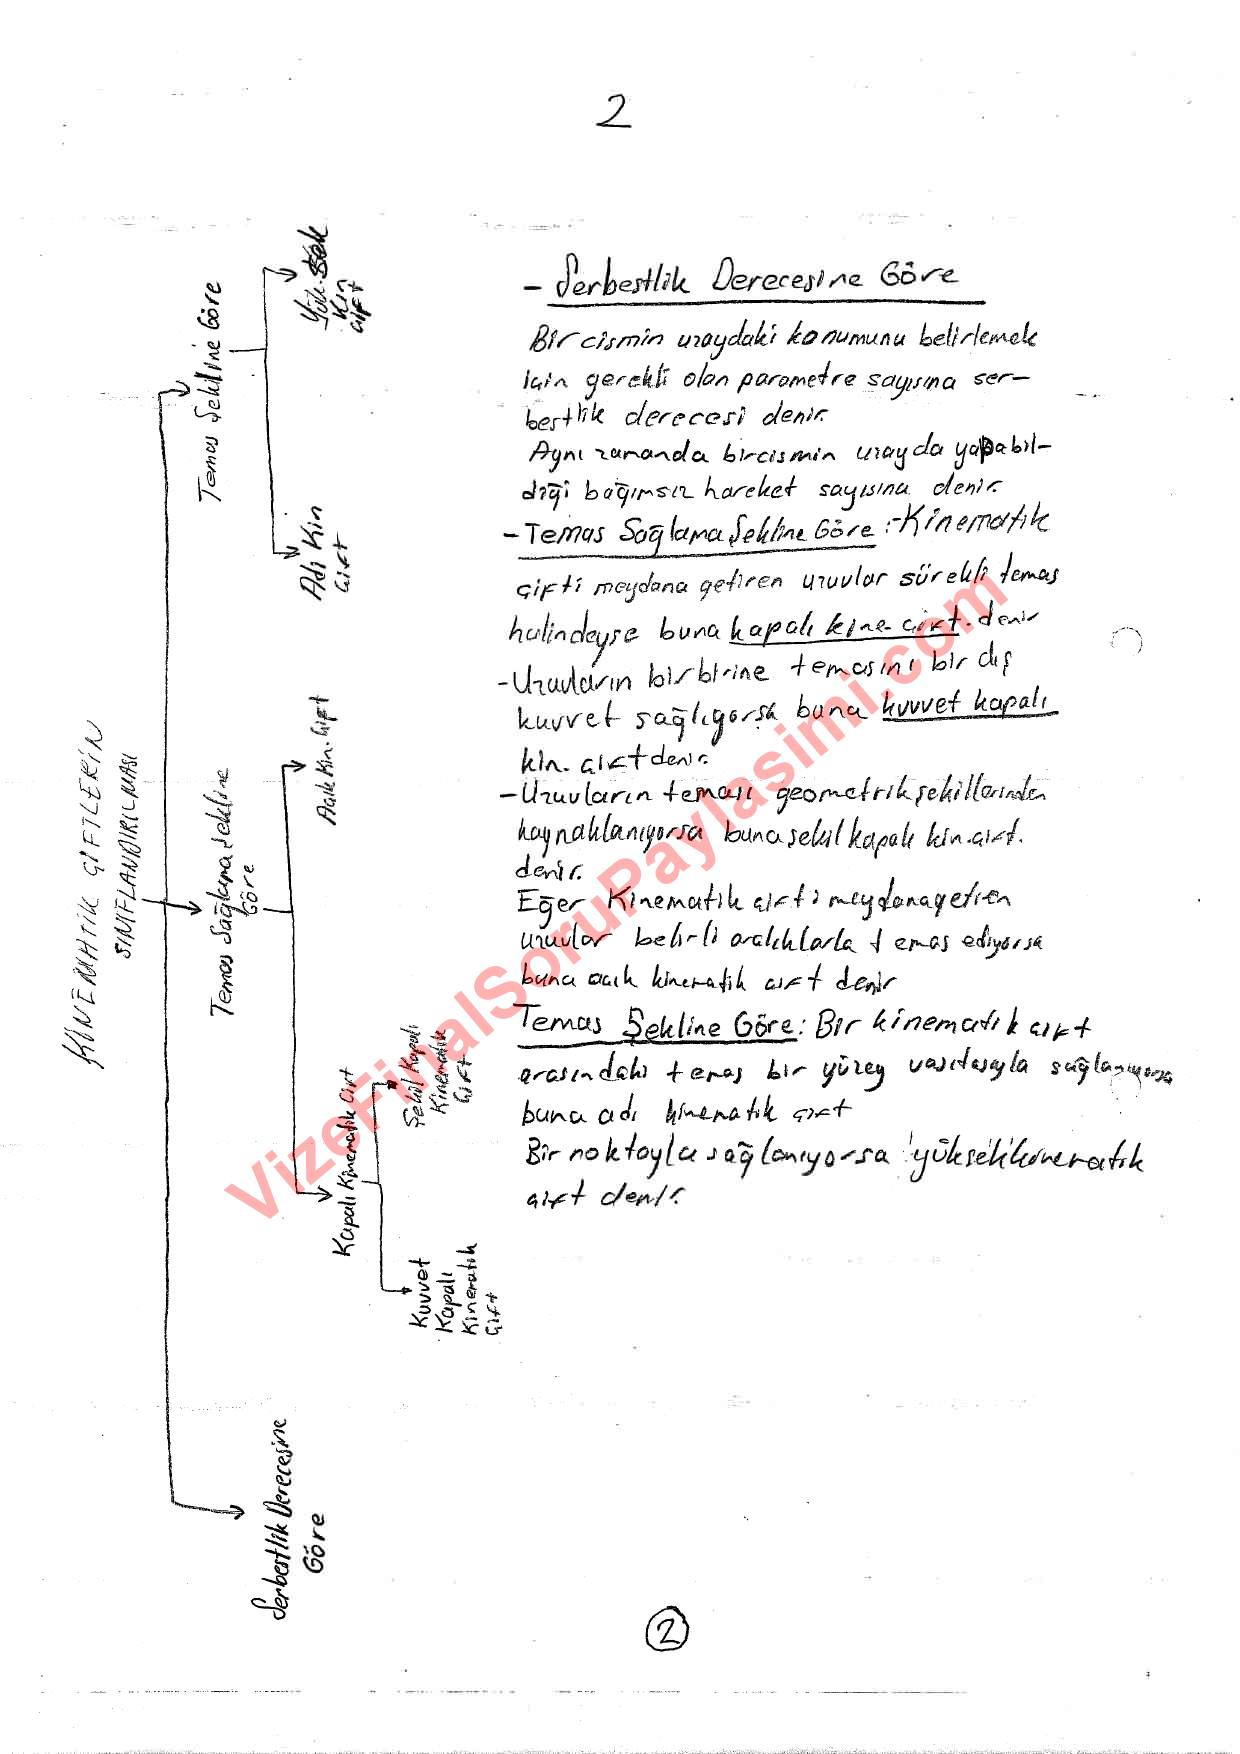 2
KİNEMATİK ÇİFTLERİN
SINIFLANDIRILMASI
Temas Şekline Göre
Yük.
Kin
Çift
Adi Kin
Çift
Temas Sağlama Şekline
Göre
Açık Kin. Çift
Kapalı Kinematik Çift
Şekil Kapalı
Kinematik
Çift
Kuvvet
Kapalı
Kinematik
Çift
Serbestlik Derecesine
Göre
- Serbestlik Derecesine Göre
Bir cismin uzaydaki konumunu belirlemek
için gerekli olan parametre sayısına ser-
bestlik derecesi denir.
Aynı zamanda bir cismin uzayda yapabil-
diği bağımsız hareket sayısına denir.
- Temas Sağlama Şekline Göre :- Kinematik
çifti meydana getiren uzuvlar sürekli temas
halindeyse buna kapalı kine. çift. denir
- Uzuvların birbirine temasını bir dış
kuvvet sağlıyorsa buna kuvvet kapalı
kin. çift denir.
- Uzuvların teması geometrik şekillerinden
kaynaklanıyorsa buna şekil kapalı kin. çift.
denir.
Eğer Kinematik çifti meydana getiren
uzuvlar belirli aralıklarla temas ediyorsa
buna açık kinematik çift denir
Temas Şekline Göre: Bir kinematik çift
arasındaki temas bir yüzey vasıtasıyla sağlanıyorsa
buna adi kinematik çift
Bir noktayla sağlanıyorsa yüksek kinematik
çift denir.
VizeFinalSoruPaylasimi.com
2